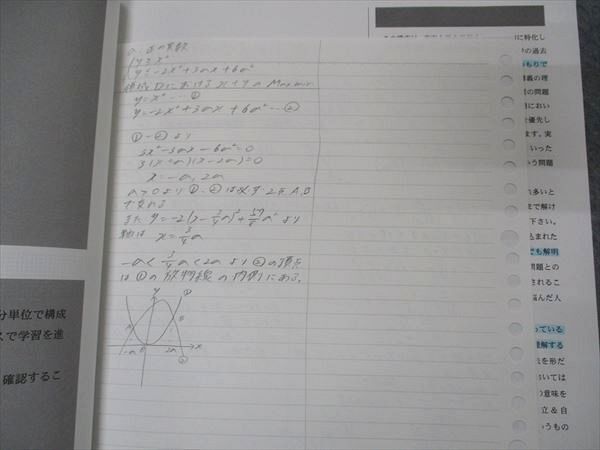 a:正の実数
y≧x²
y≦-2x²+3ax+6a²
領域Dにおける x+y の Max min
y=x² … ①
y=-2x²+3ax+6a² … ②
①-② より
3x²-3ax-6a²=0
3(x+a)(x-2a)=0
x=-a, 2a
a>0より ①,② は必ず 2点A,B
で交わる
また y=-2(x-3/4a)²+57/8a² より
軸は x=3/4a
-a<3/4a<2aより②の頂点
は①の放物線の内側にある。
y
①
A
B
-a
0
2a
x
②
分単位で構成
スで学習を進
確認するこ
に特化し
の過去
もりで
義の理
の問題
におい
優先し
ます。実
いった
う問題
多いと
まで解け
下さい。
込まれた
でも解明
問題との
されるこ
悩んだ人
っている
理解する
を形だ
おいては
の意味を
立&自
いうもの